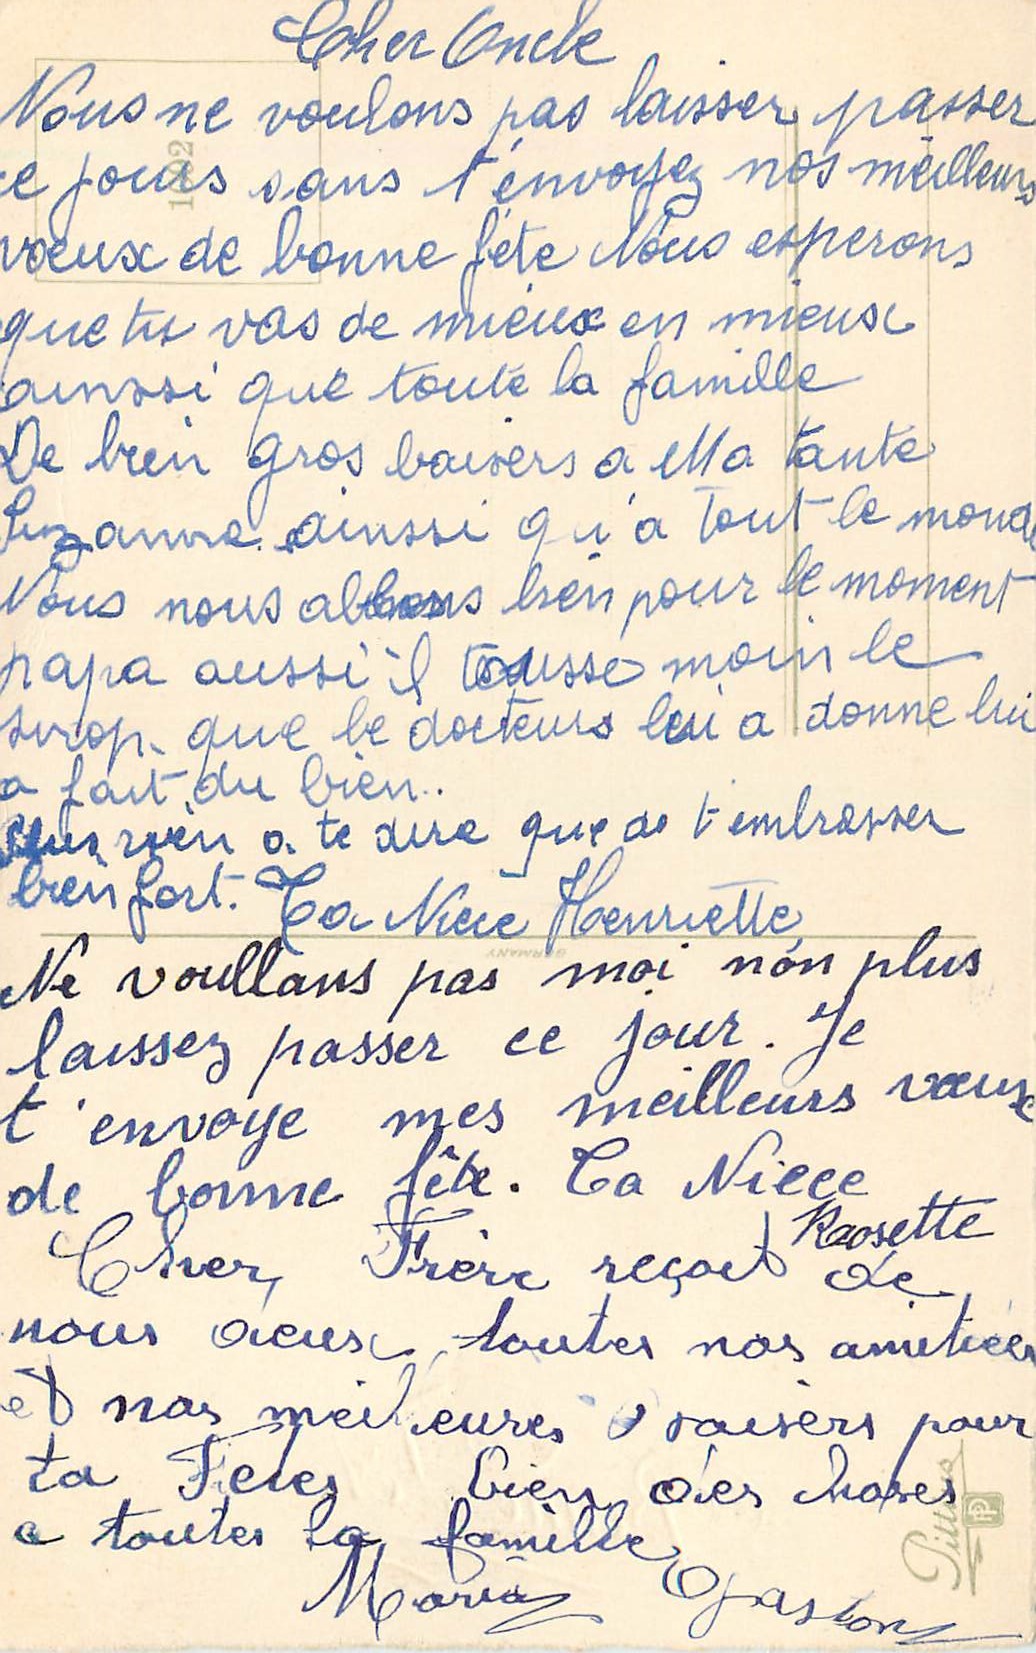 Cher Oncle
Nous ne voulons pas laisser passer
ce jours sans t'envoyez nos meilleurs
voeux de bonne fête Nous esperons
que tu vas de mieux en mieux
ainssi que toute la famille
De bien gros baisers a Ma tante
Suzanne ainssi qu'a tout le monde
Nous nous allons bien pour le moment
papa aussi il tousse moin le
sirop que le docteurs lui a donne lui
a fait du bien..
Plus rien a te dire que de t'embrasser
bien fort. Ta Niece Henriette
GERMANY
Ne voullans pas moi non plus
laissez passer ce jour. Je
t'envoye mes meilleurs vœux
de bonne fête. Ta Niece
Rosette
Cher Frère reçoit de
nous deux toutes nos amitiées
et nos meilleures baisers pour
ta Fetes bien des choses
a toutes la famille
Maria Gaston
1092
Pittius
PP